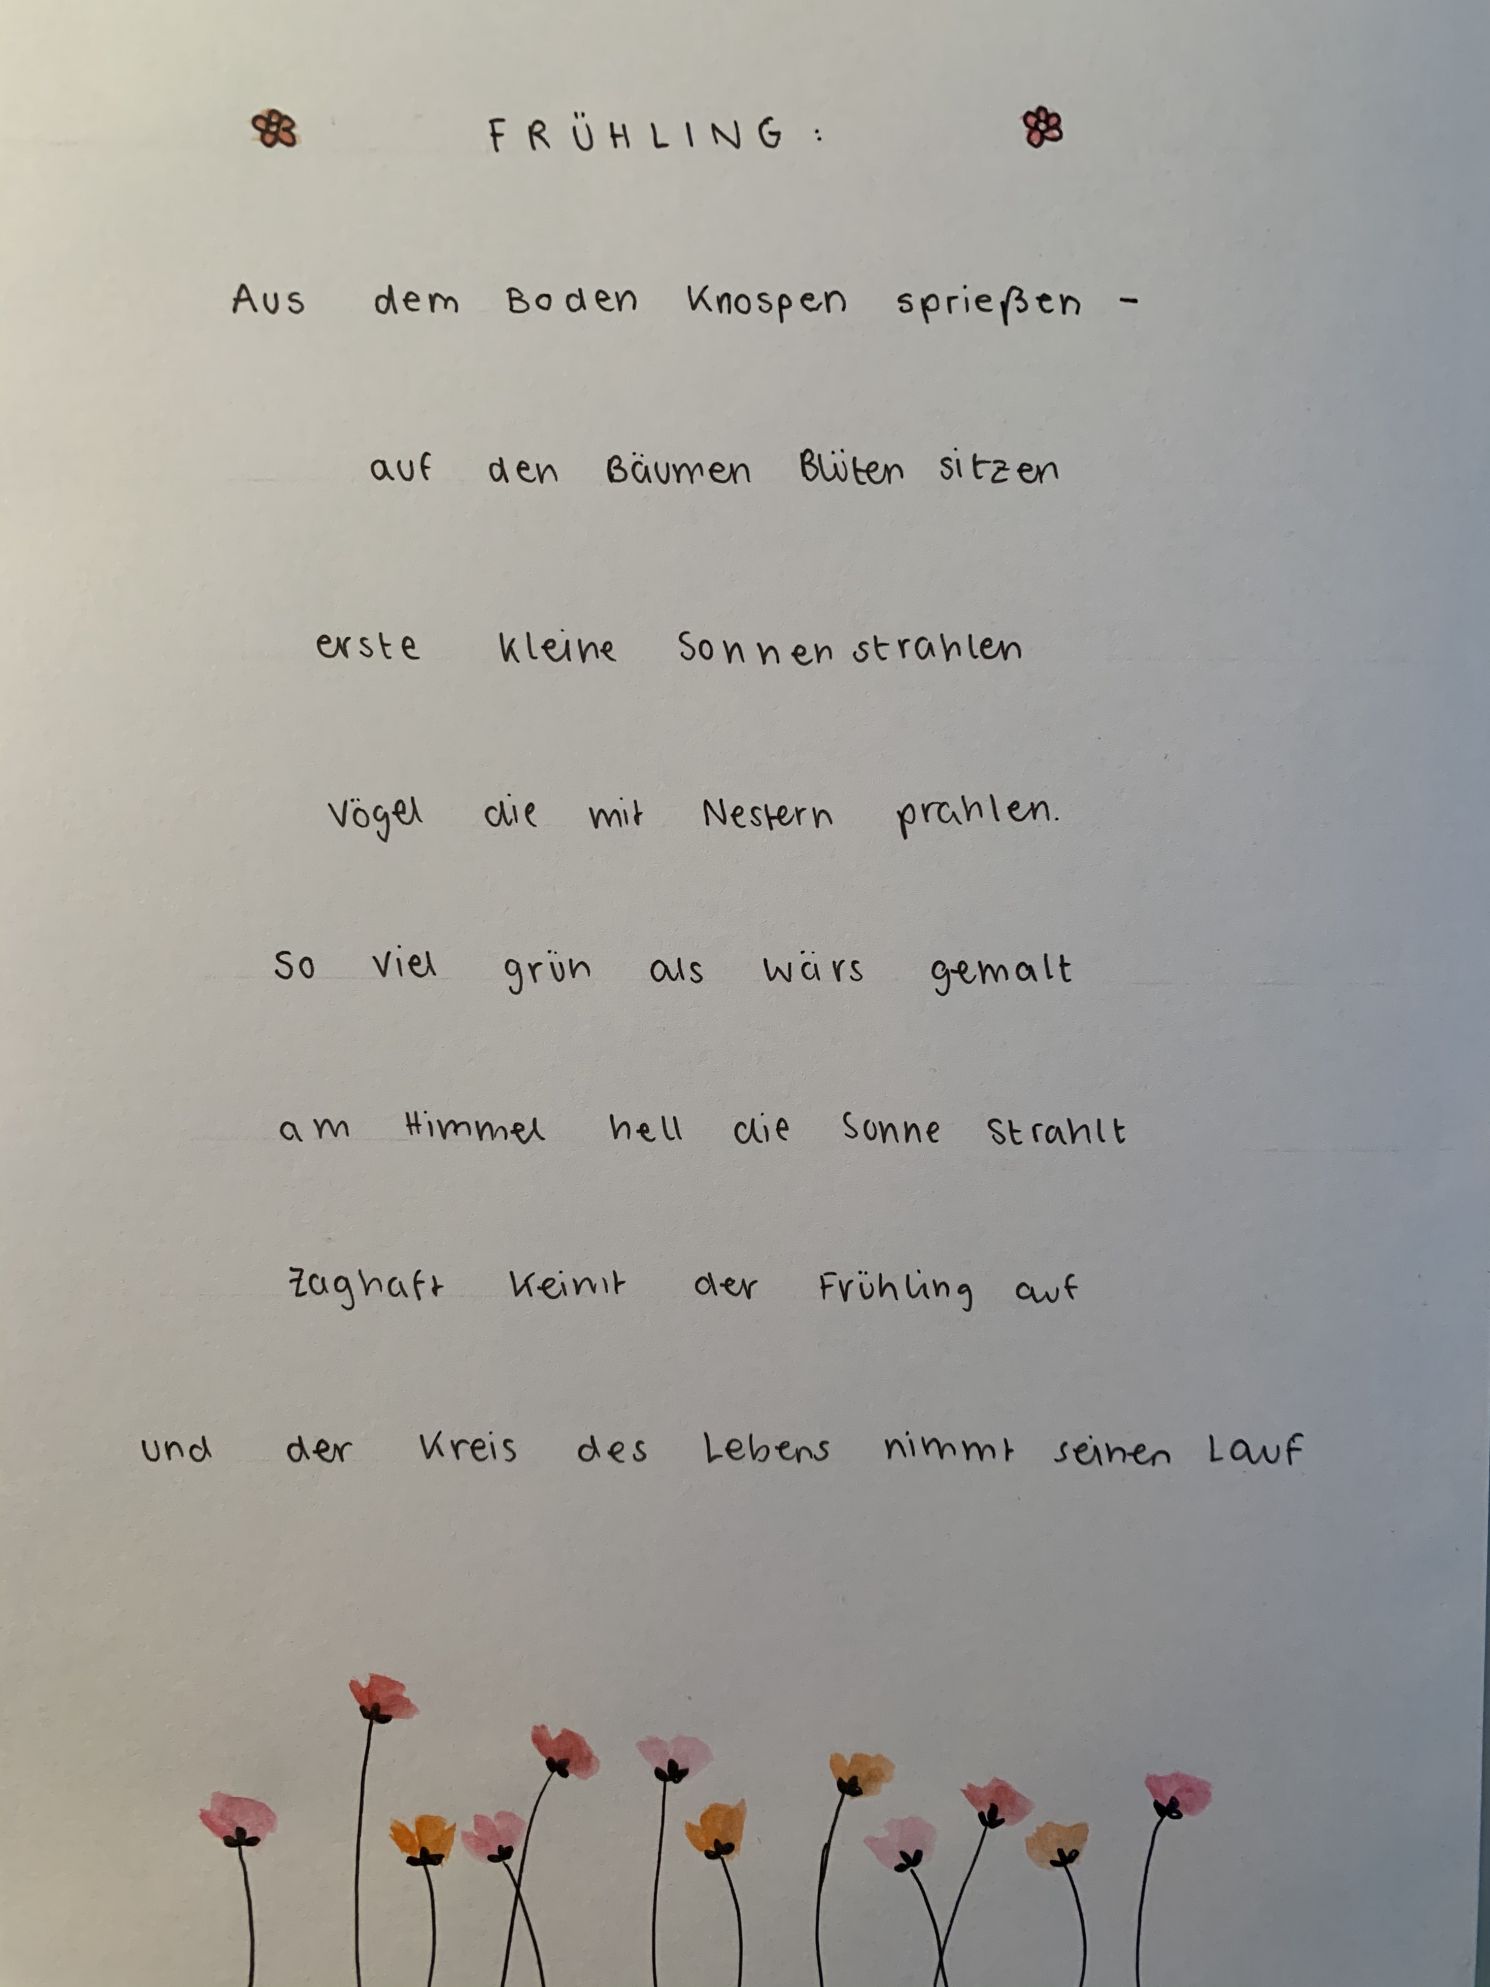 FRÜHLING:
Aus dem Boden Knospen sprießen -
auf den Bäumen Blüten sitzen
erste kleine Sonnenstrahlen
Vögel die mit Nestern prahlen.
So viel grün als wärs gemalt
am Himmel hell die Sonne strahlt
Zaghaft keimt der Frühling auf
und der Kreis des Lebens nimmt seinen Lauf